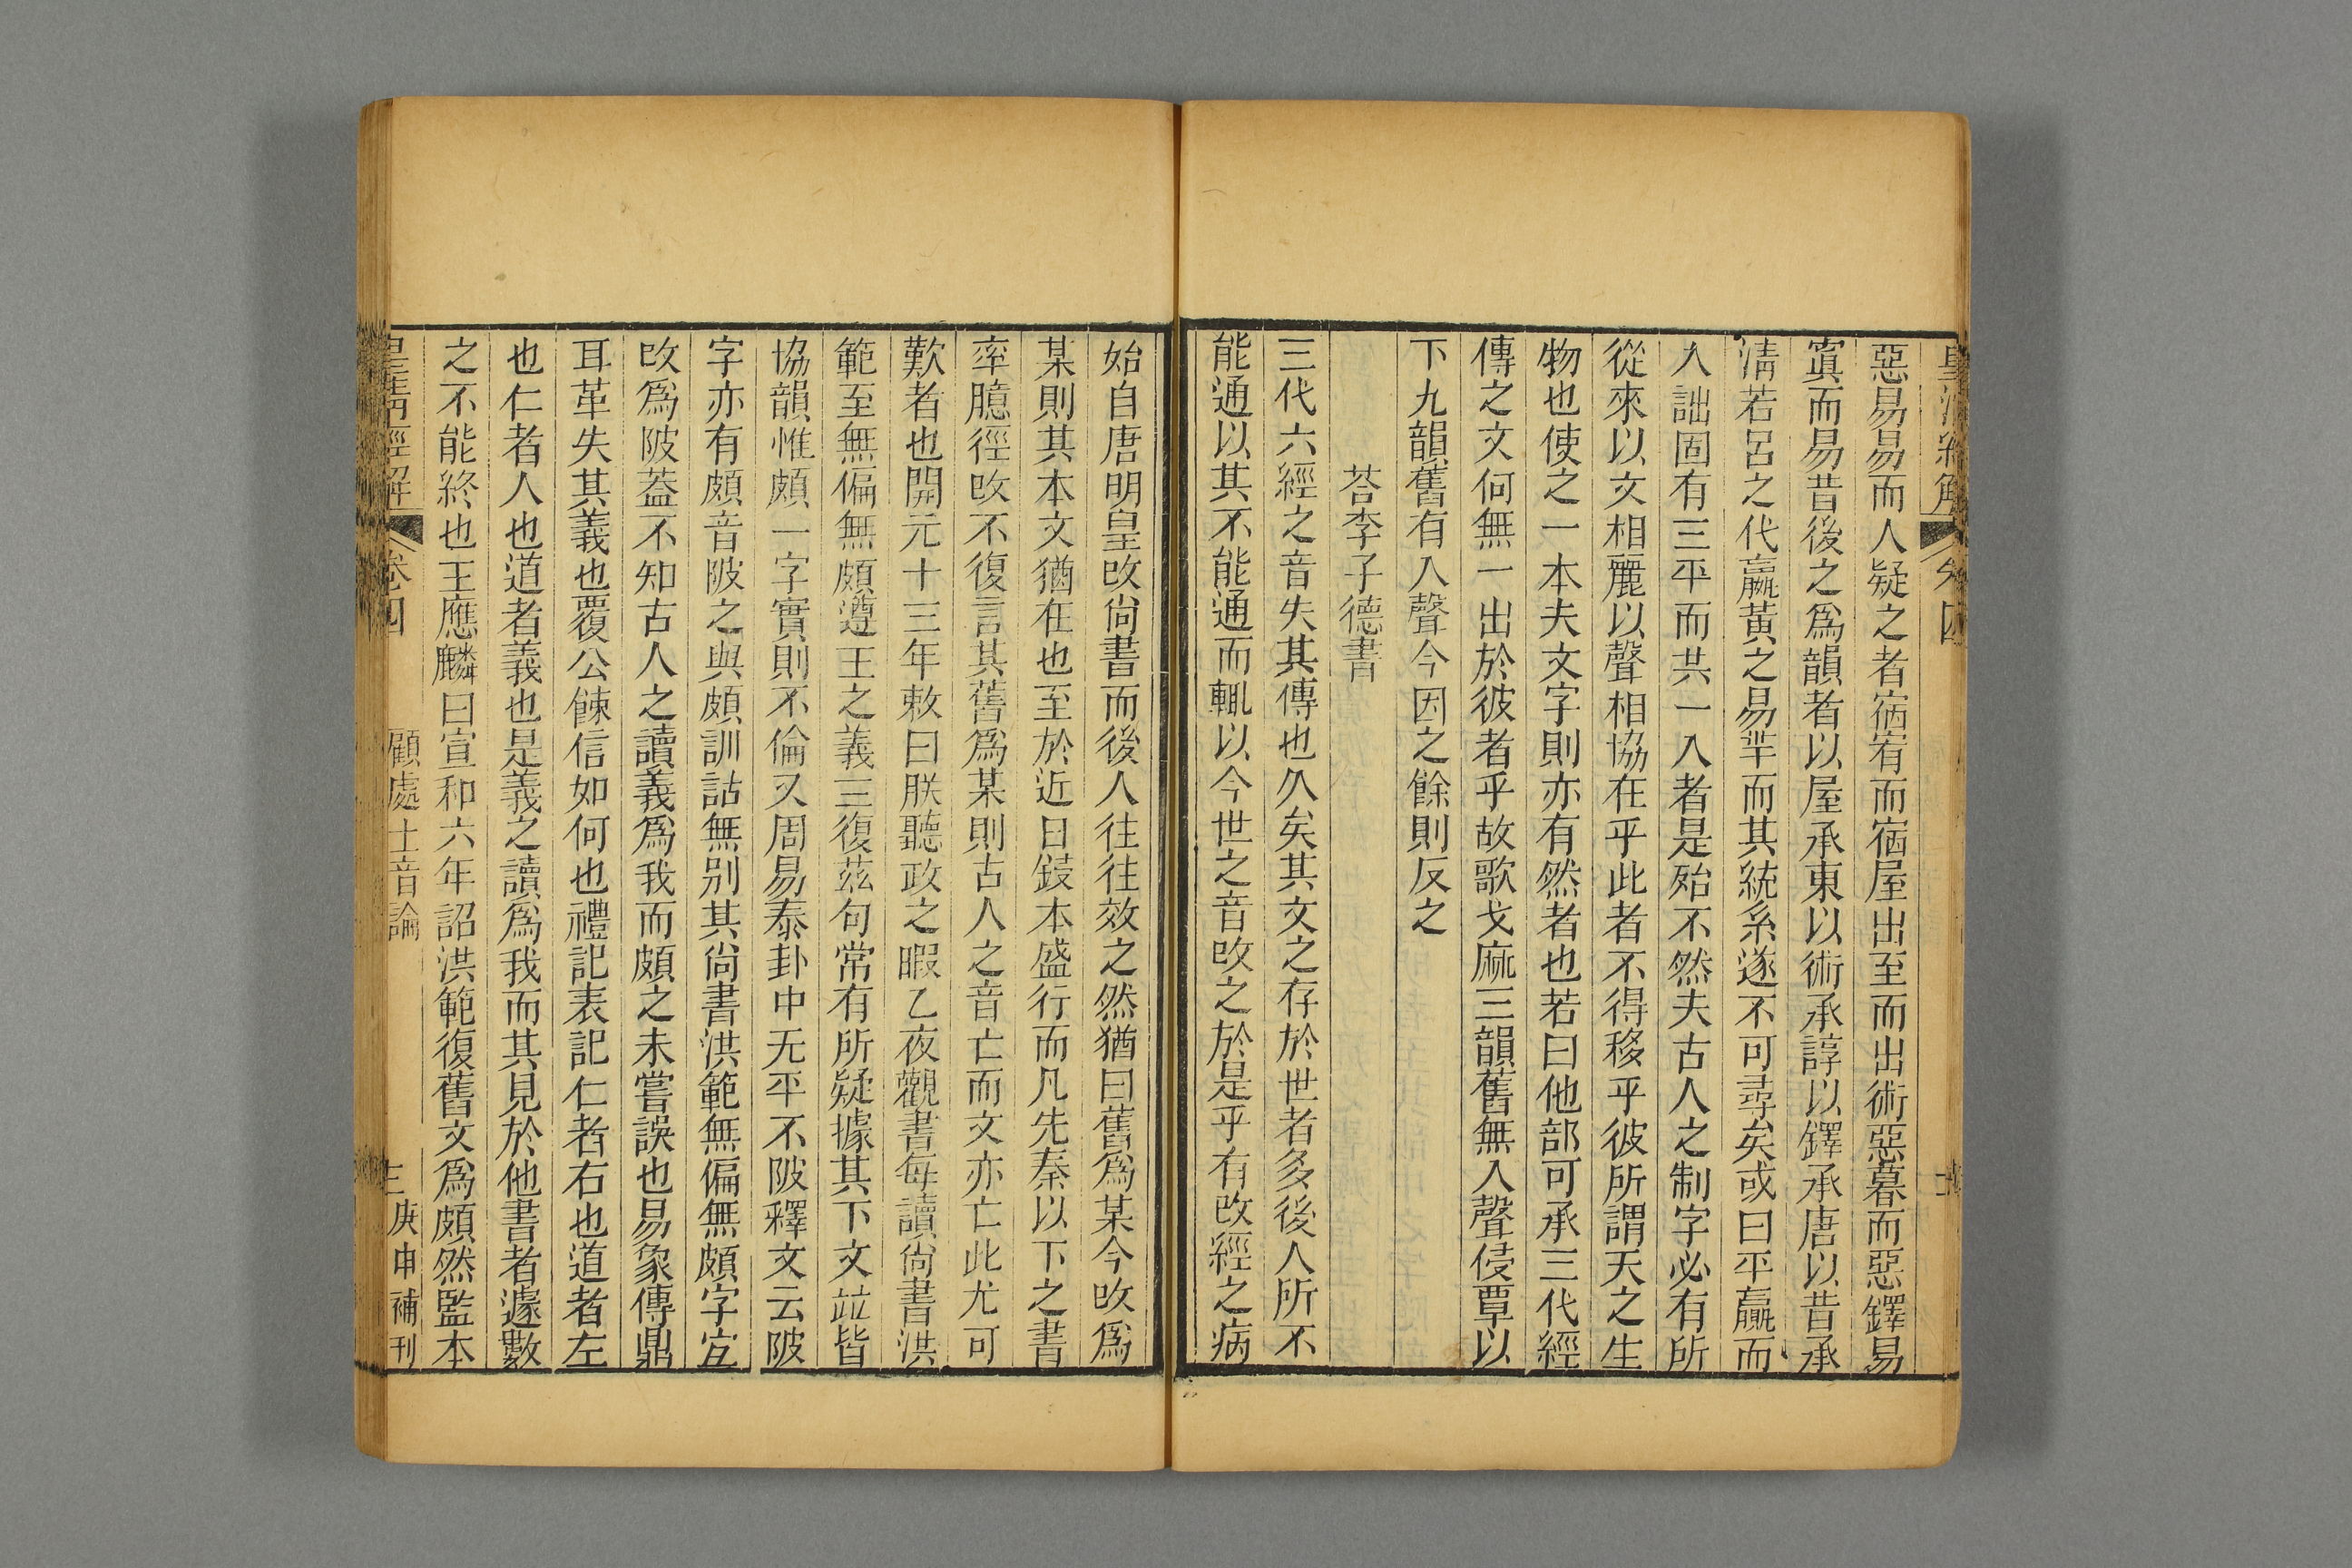 皇清經解
卷四
惡易易而人疑之者宿宥而宿屋出至而出術惡暮而惡鐸易
寘而易昔後之爲韻者以屋承東以術承諄以鐸承唐以昔承
淸若呂之代嬴黃之易羋而其統系遂不可尋矣或曰平嬴而
入詘固有三平而共一入者是殆不然夫古人之制字必有所
從來以文相麗以聲相協在乎此者不得移乎彼所謂天之生
物也使之一本夫文字則亦有然者也若曰他部可承三代經
傳之文何無一出於彼者乎故歌戈麻三韻舊無入聲侵覃以
下九韻舊有入聲今因之餘則反之
荅李子德書
三代六經之音失其傳也久矣其文之存於世者多後人所不
能通以其不能通而輒以今世之音改之於是乎有改經之病
始自唐明皇改尙書而後人往往效之然猶曰舊爲某今改爲
某則其本文猶在也至於近日鋟本盛行而凡先秦以下之書
率臆徑改不復言其舊爲某則古人之音亡而文亦亡此尤可
歎者也開元十三年敕曰朕聽政之暇乙夜觀書每讀尙書洪
範至無偏無頗遵王之義三復茲句常有所疑據其下文竝皆
協韻惟頗一字實則不倫又周易泰卦中无平不陂釋文云陂
字亦有頗音陂之與頗訓詁無别其尙書洪範無偏無頗字宐
改爲陂葢不知古人之讀義爲我而頗之未嘗誤也易象傳鼎
耳革失其義也覆公餗信如何也禮記表記仁者右也道者左
也仁者人也道者義也是義之讀爲我而其見於他書者遽數
之不能終也王應麟曰宣和六年詔洪範復舊文爲頗然監本
皇淸經解
卷四
顧處士音論
庚申補刊